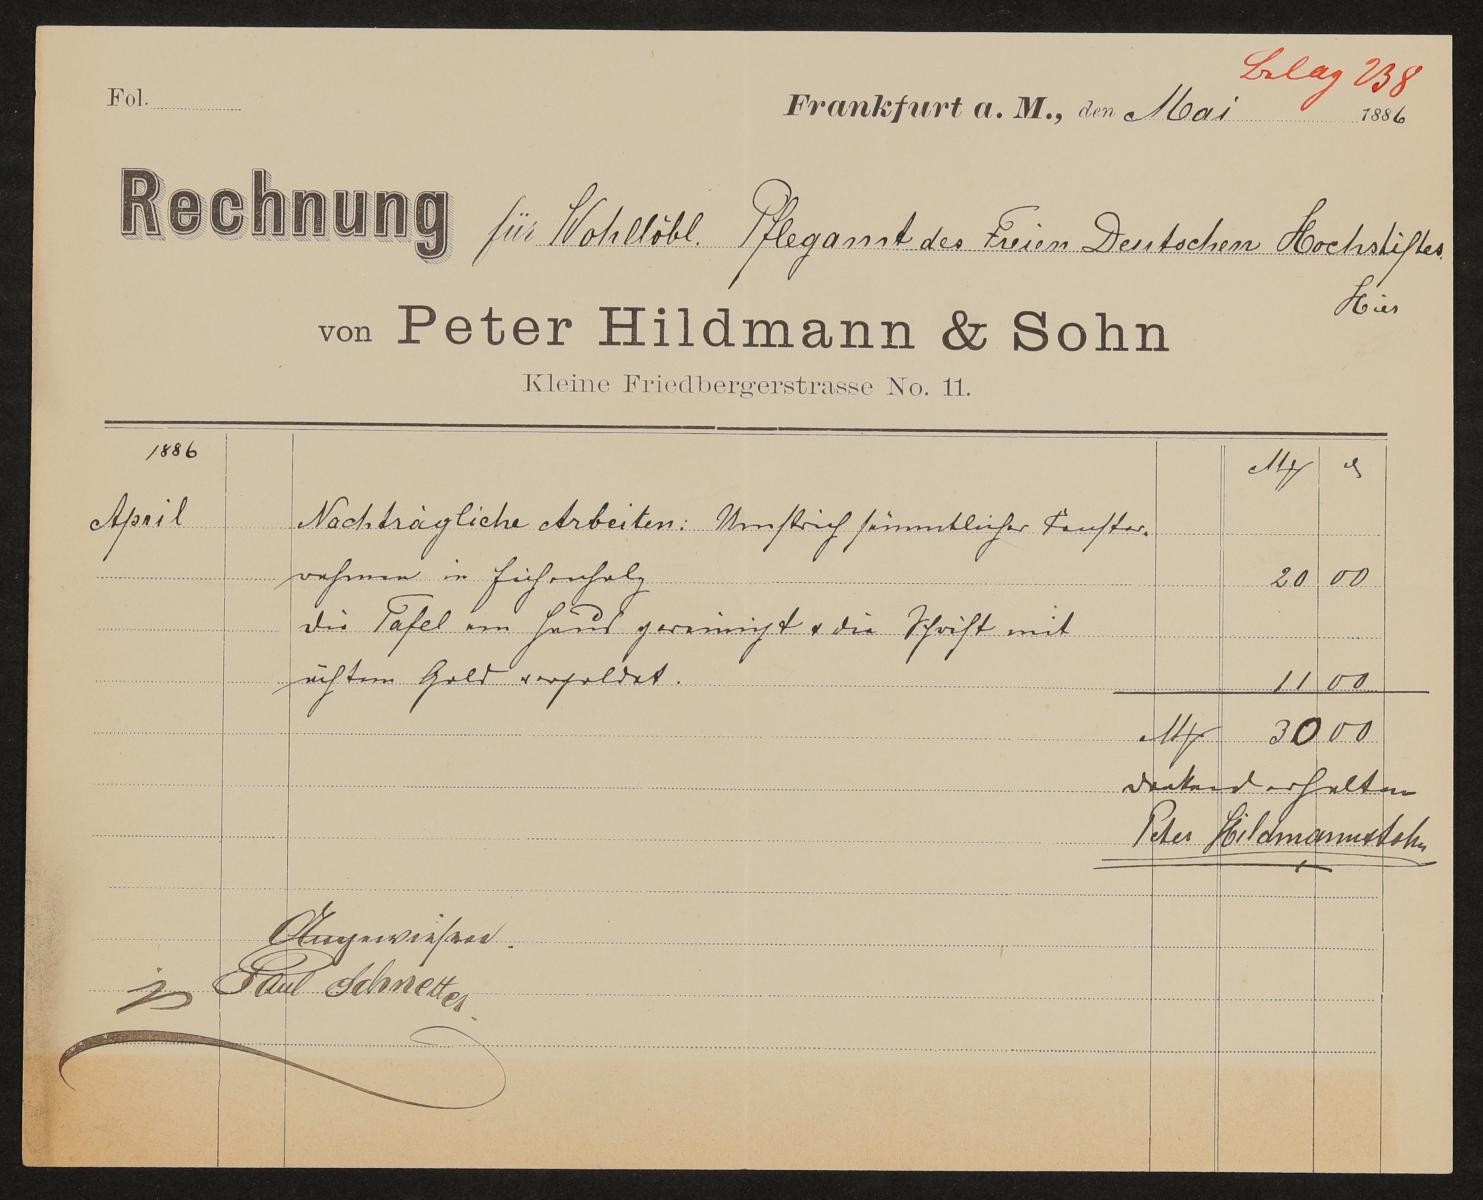 Belag 238
Fol.
Frankfurt a. M., den Mai 1886
Rechnung für Wohllöbl. Pflegamt des Freien Deutschen Hochstiftes
Hier
von Peter Hildmann & Sohn
Kleine Friedbergerstrasse No. 11.
1886 M ₰
April Nachträgliche Arbeiten: Umstrich sämmtlicher Fenster-
rahmen in Eichenholz 20 00
die Tafel am Haus gereinigt & die Schrift mit
ächtem Gold vergoldet. 11 00
M 30 00
dankend erhalten
Peter Hildmann & Sohn
Angewiesen.
Paul Schnetter.